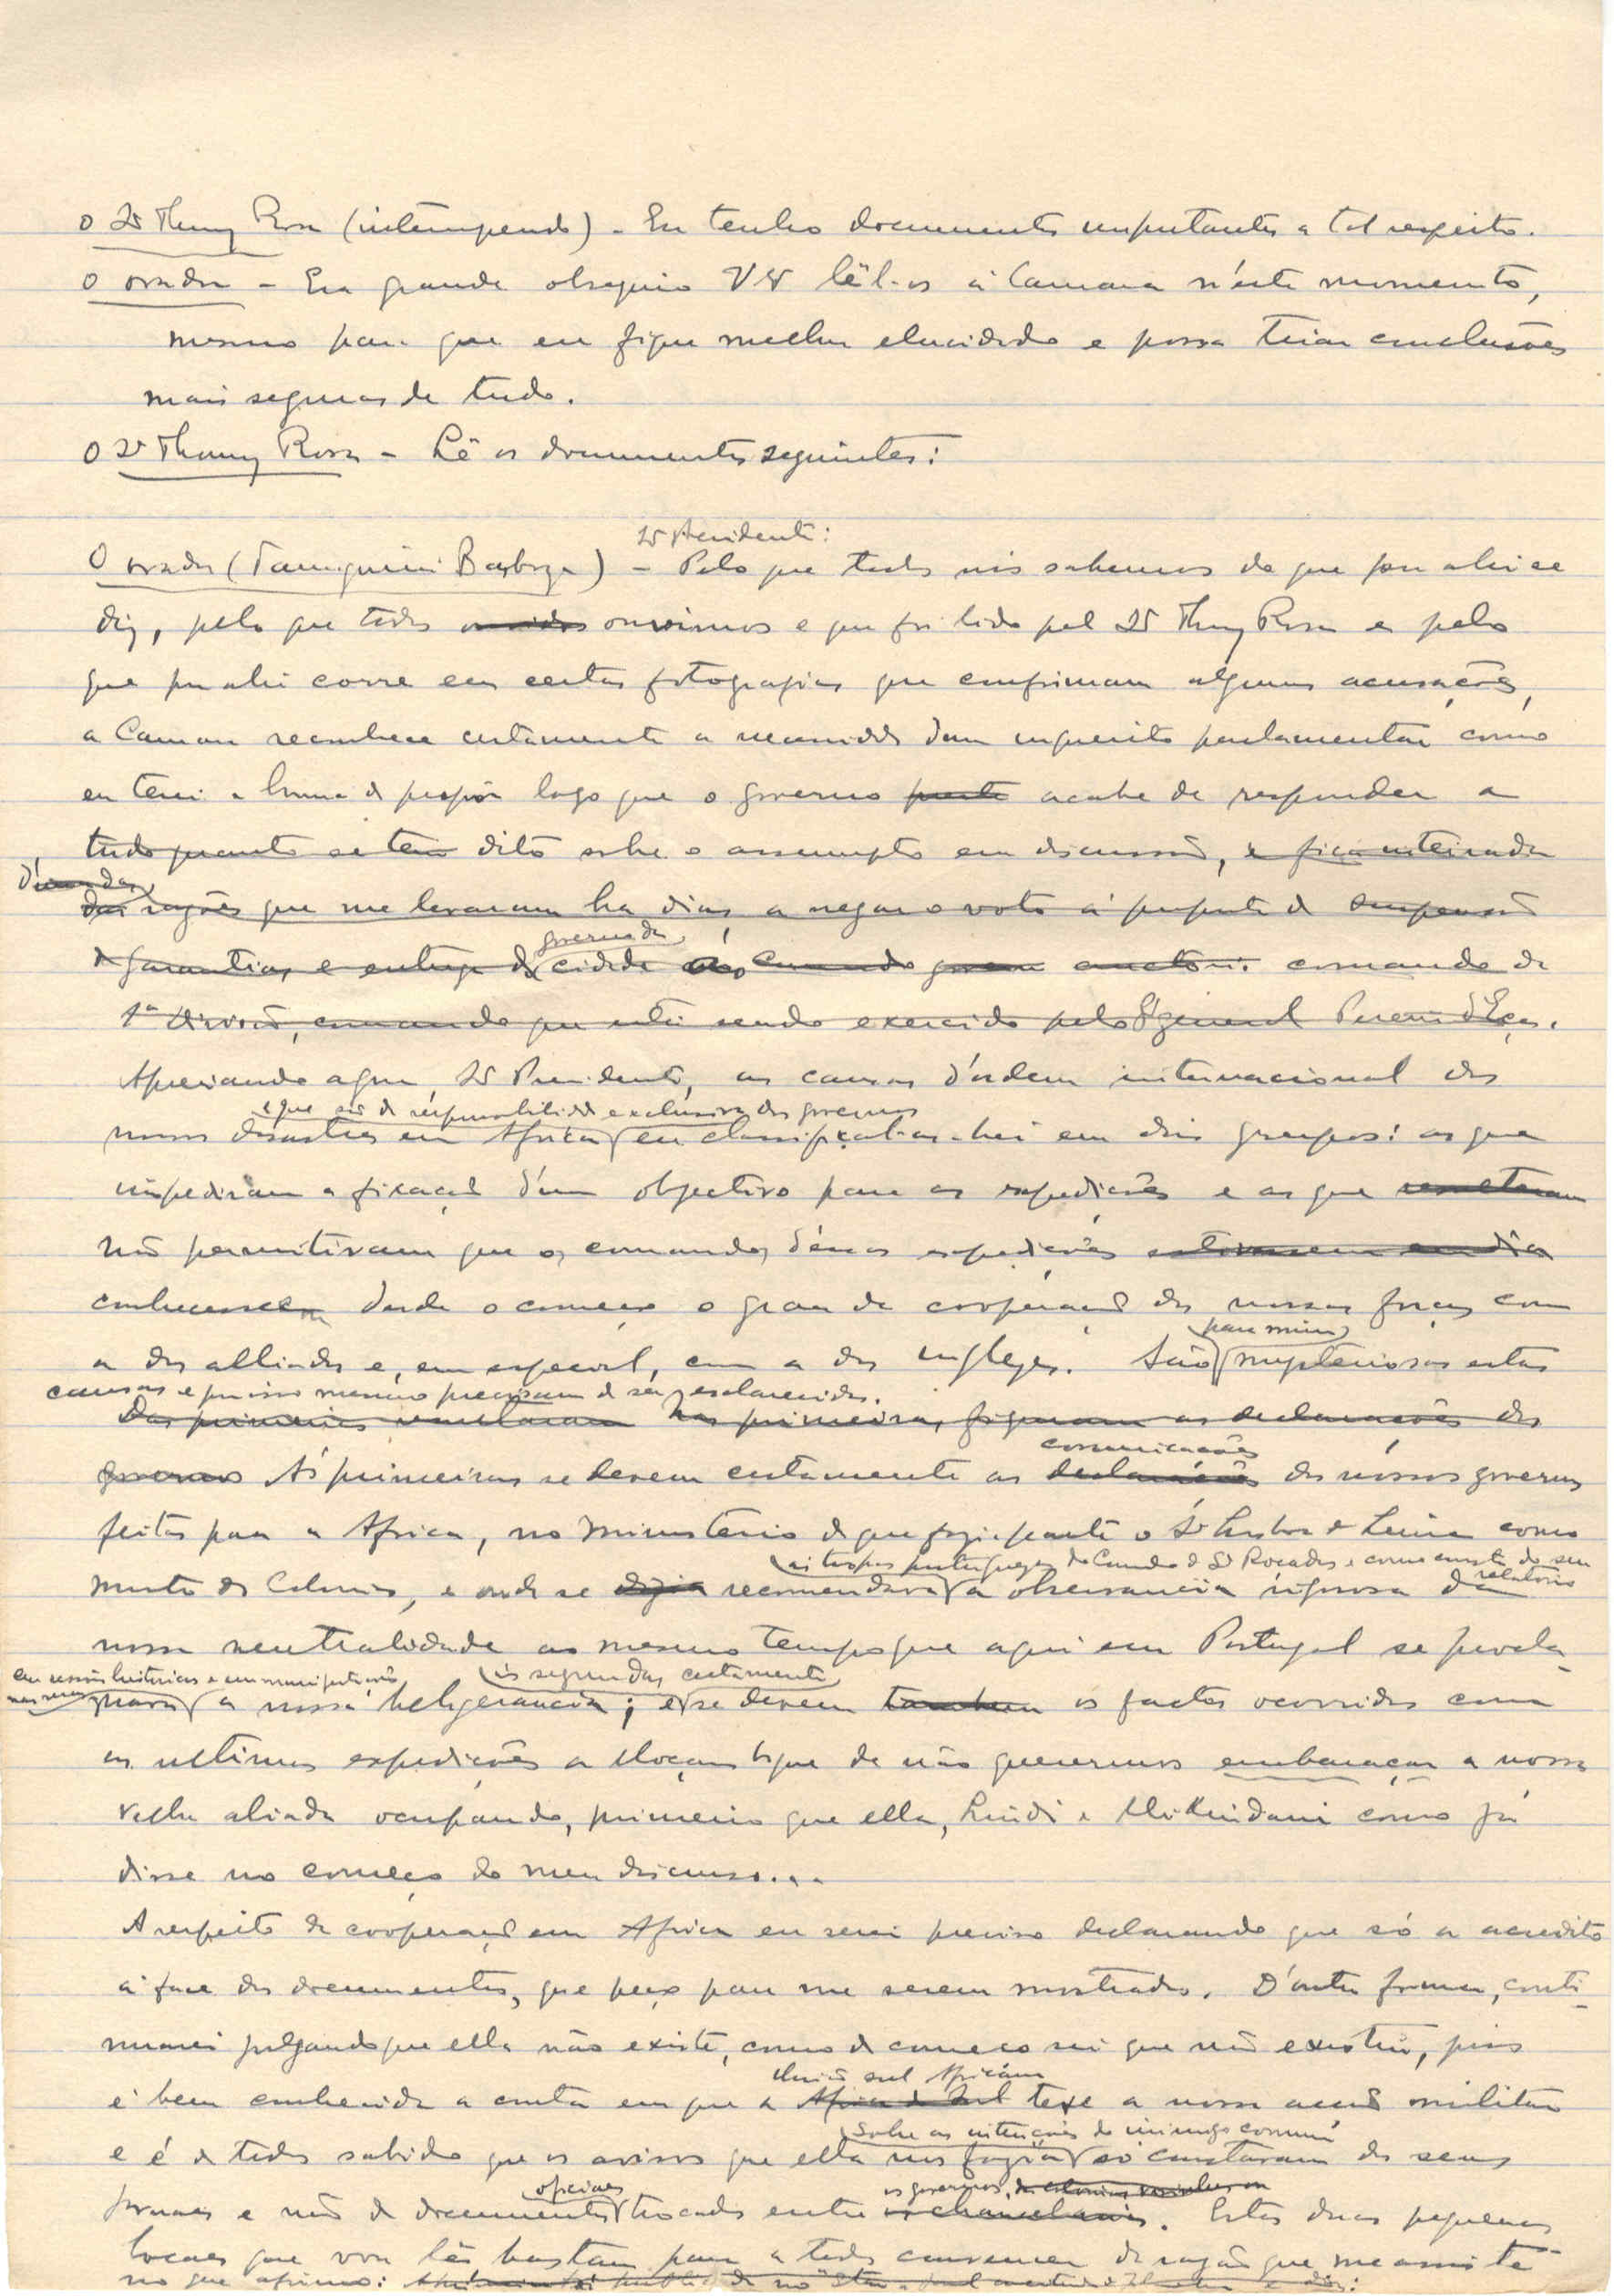 O Sr Thomaz Rosa (interrompendo) - Eu tenho documentos importantes a tal respeito.
O orador - Era grande obsequio V Ex lêl-os á Camara n'este momento,
mesmo para que eu fique melhor elucidado e possa tirar conclusões
mais seguras de tudo.
O Sr Thomaz Rosa - Lê os documentos seguintes:
Sr Presidente:
O orador (Tamagnini Barbosa) - Pelo que todos nós sabemos do que por ahi se
diz, pelo que todos ouvimos e que foi lido pelo Sr Thomaz Rosa e pelo
que por ahi corre em certas fotografias que confirmam algumas acusações,
a Camara reconhece certamente a necessidade d'um inquerito parlamentar como
eu terei a honra de propôr logo que o governo acabe de responder a
tudo quanto se tem dito sobre o assumpto em discussão, e fica inteirada
das razões que me levaram ha dias a negar o voto á proposta de suspensão
governo da
de garantias e entrega da cidade comando da
1ª Divisão, comando que está sendo exercido pelo general Pereira d'Eça.
Apreciando agora, Sr Presidente, as causas d'ordem internacional dos
e que são de responsabilidade exclusiva dos governos
nossos desastres em Africa eu classifical-as-hei em dois grupos: as que
impediram a fixação d'um objectivo para as expedições e as que
não permitiram que os comandos d'essas expedições
conhecessem desde o começo o grau de cooperação das nossas forças com
para mim
a dos alliados e, em especial, com a dos inglezes. São mysteriosas estas
causas e por isso mesmo precisam de ser esclarecidas.
Das primeiras resultaram Nas primeiras, figuram as declarações dos
comunicações
governos Ás primeiras se devem certamente as declarações dos nossos governos
feitas para a Africa, no Ministerio de que fazia parte o Sr Lisboa de Lima como
ás tropas portuguezas do Comando do Sr Roçadas e como consta do seu relatorio
Ministro das Colonias, e onde se dizia recomendava a observancia rigorosa da
nossa neutralidade ao mesmo tempo que aqui em Portugal se procla-
em sessões historicas e em manifestações
ás segundas certamente
mava a nossa beligerancia; e se devem tambem os factos ocorridos com
as ultimas expedições a Moçambique de não querermos embaraçar a nossa
velha aliada ocupando, primeiro que ella, Lindi e Mikindani como já
disse no começo do meu discurso...
A respeito da cooperação em Africa eu serei preciso declarando que só a acredito
á face dos documentos, que peço para me serem mostrados. D'outra forma, conti-
nuarei julgando que ella não existe, como de começo sei que não existiu, pois
União sul Africana
é bem conhecida a conta em que a Africa do Sul teve a nossa acção militar
sobre as intenções do inimigo comum
e é de todos sabido que os avisos que ella nos fazia só constaram dos seus
oficiaes
os governos
jornaes e não de documentos trocados entre as chancelarias. Estas duas pequenas
locaes que vou lêr bastam para a todos convencer da razão que me assiste
no que afirmo: